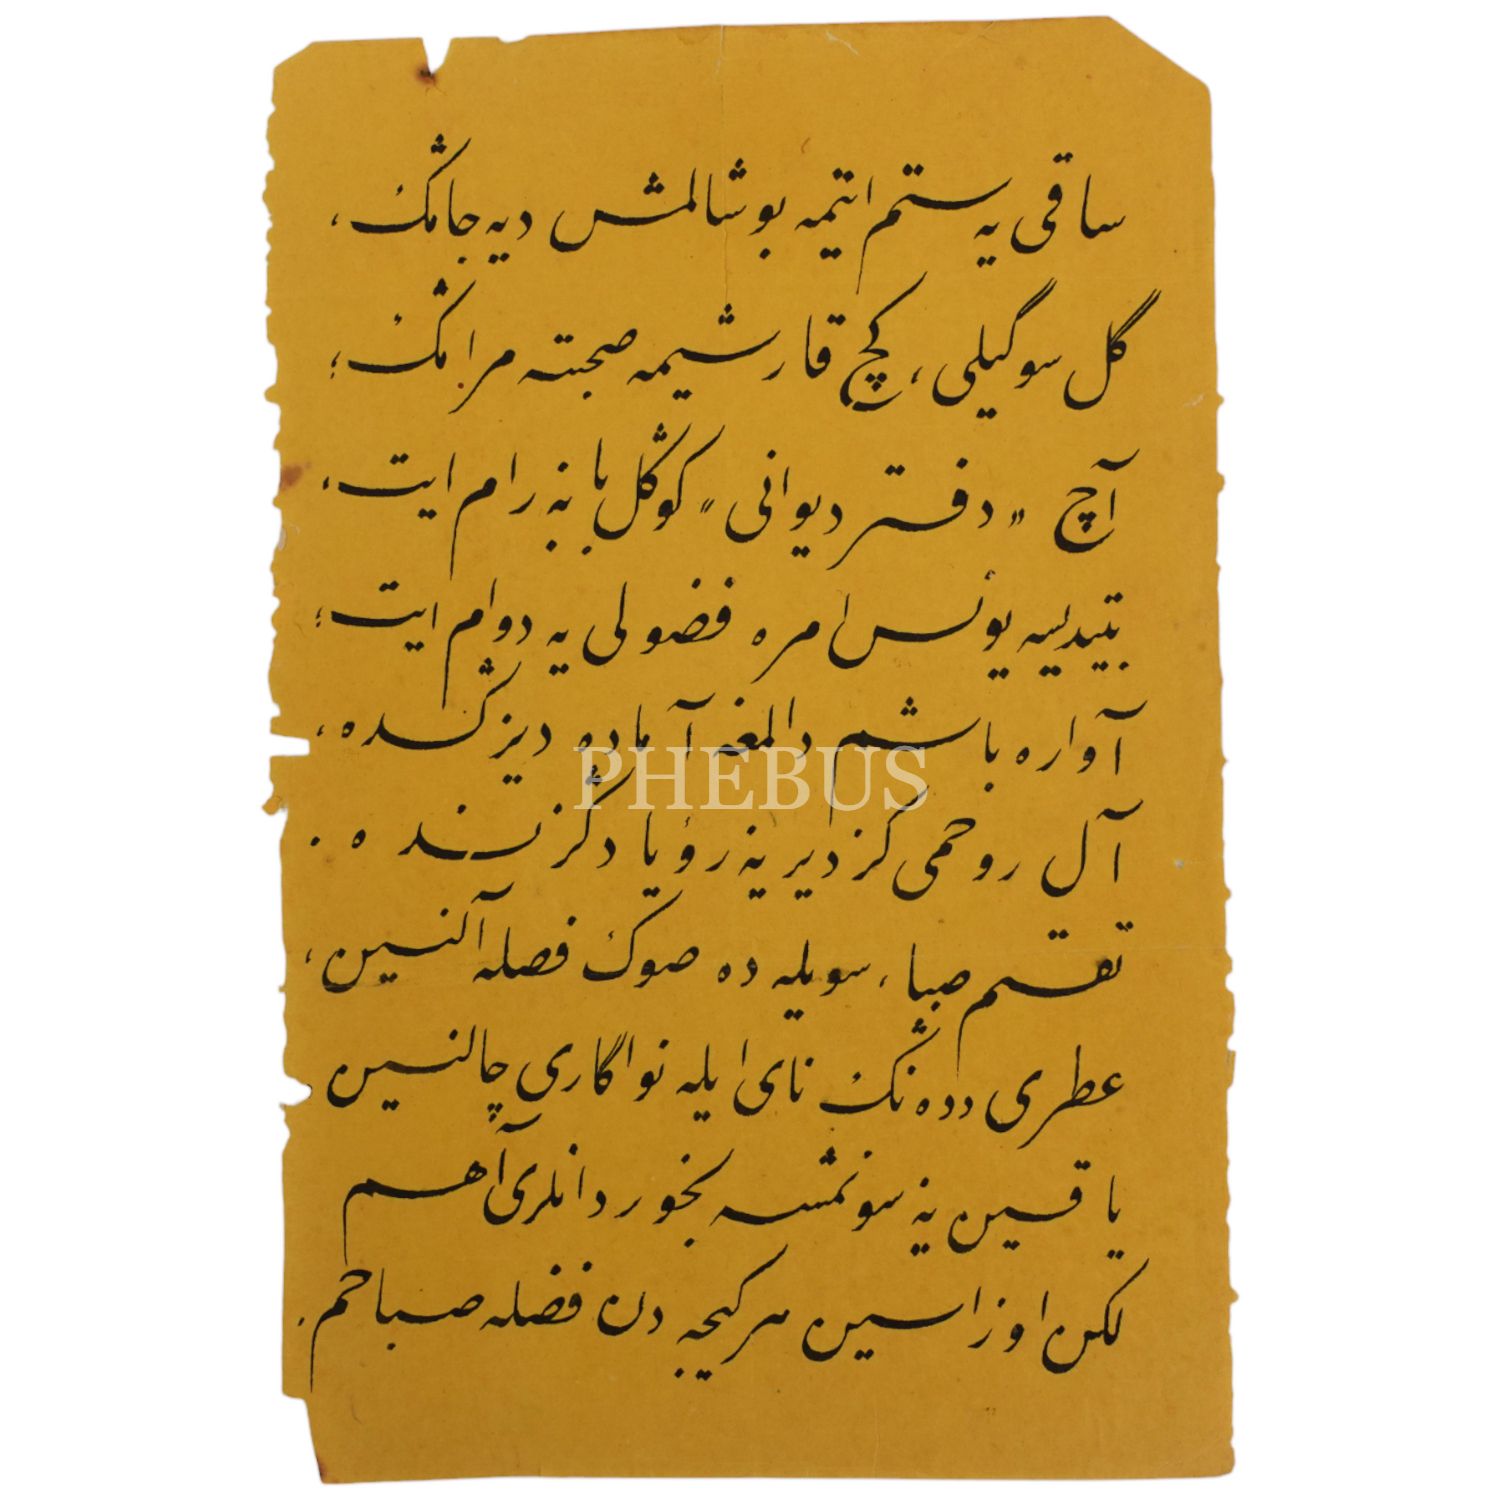 ساقی یه ستم ایتمه بوشالمش دیه جامڭ ،
گل سوگیلی ، کچ قارشیمه صحبته مرامڭ ؛
آچ « دفتر دیوانی » کوڭل بابنه رام ایت ،
بتیدیسه یونس امره فضولی یه دوام ایت ؛
آواره باشم دالمغه آماده دیزڭده ،
آل روحمی کزدیر ینه رؤیا دڭزنده .
تقسم صبا ، سویله ده صوڭ فصله آلنسین ،
عطری دده نڭ نای ایله نواکاری چالنسین
یاقسین ینه سونمشسه بخوردانلری آهم
لکن اوزاسین هر کیجه دن فضله صباحم .
PHEBUS